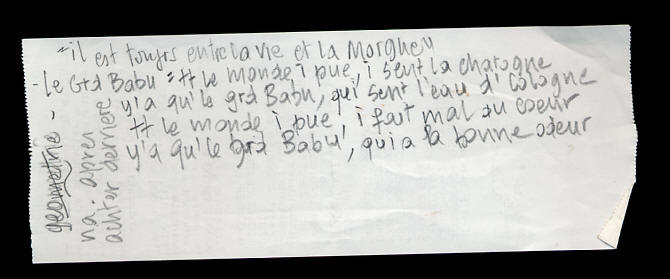 "il est toujrs entre la vie et la Morgue"
- Le Grd Babu : tt le monde i pue, i sent la charogne
y'a qu'le grd Babu, qui sent l'eau d'Cologne
tt le monde i pue i fait mal au coeur
y'a qu'le grd Babu, qui a la bonne odeur
geometrie -
na. apren
achter derriere